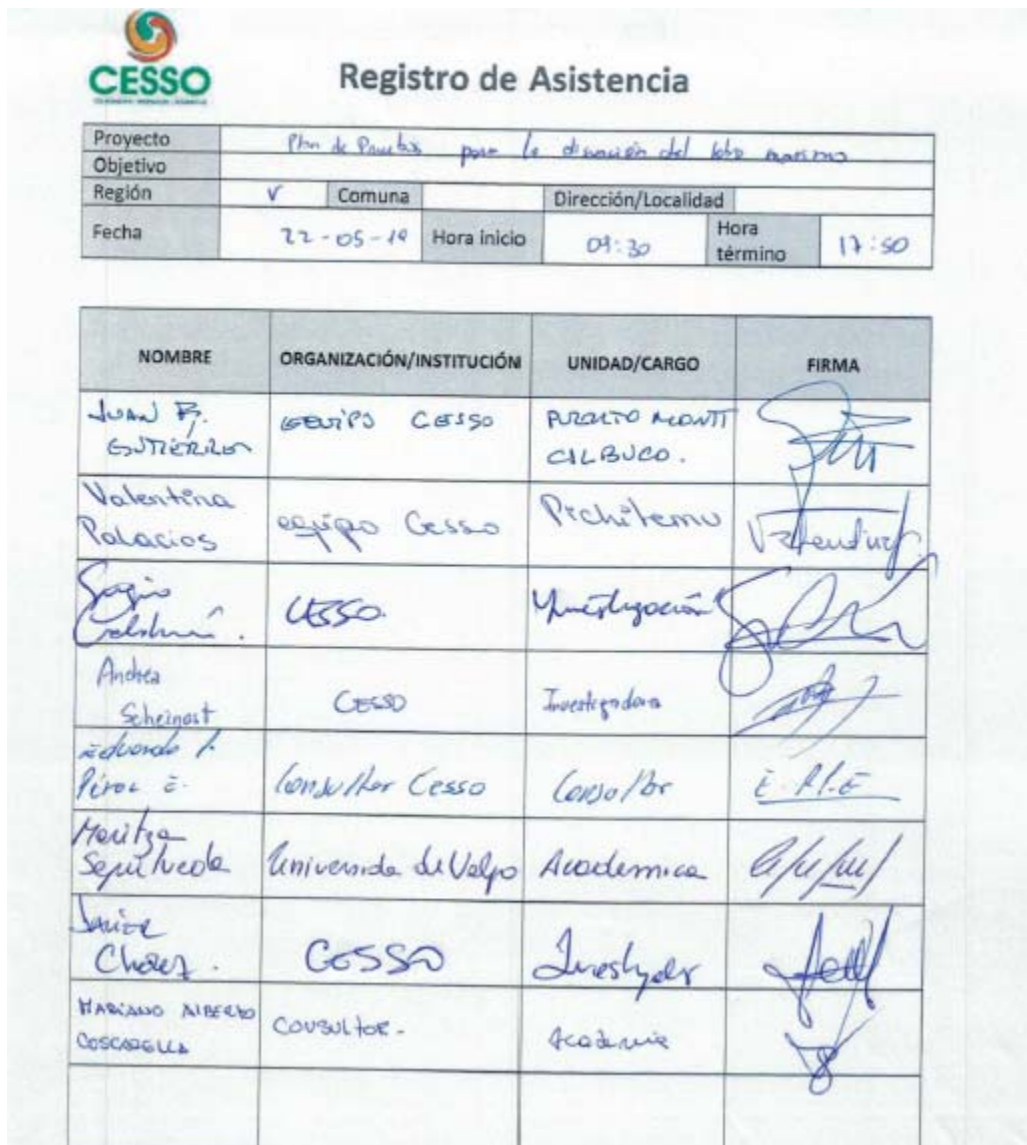 CESSO
Registro de Asistencia
Proyecto Plan de Pruebas para la disuasión del lobo marino
Objetivo
Región V Comuna Dirección/Localidad
Fecha 22-05-19 Hora inicio 09:30 Hora término 17:50
NOMBRE ORGANIZACIÓN/INSTITUCIÓN UNIDAD/CARGO FIRMA
JUAN
GUTIÉRREZ
EQUIPO CESSO
PUERTO MONTT
CALBUCO.
Valentina
Palacios
equipo Cesso
Pichilemu
CESSO.
Investigación
Andrea
Scheinast
CESSO
Investigadora
Eduardo
Pérez E.
Consultor Cesso
Consultor
E.P.E
Maritza
Sepúlveda
Universida de Valpo
Academica
Javier
Chavez.
CESSO
Investigador
MARIANO ALBERTO
COSCARELLA
CONSULTOR.-
Academia